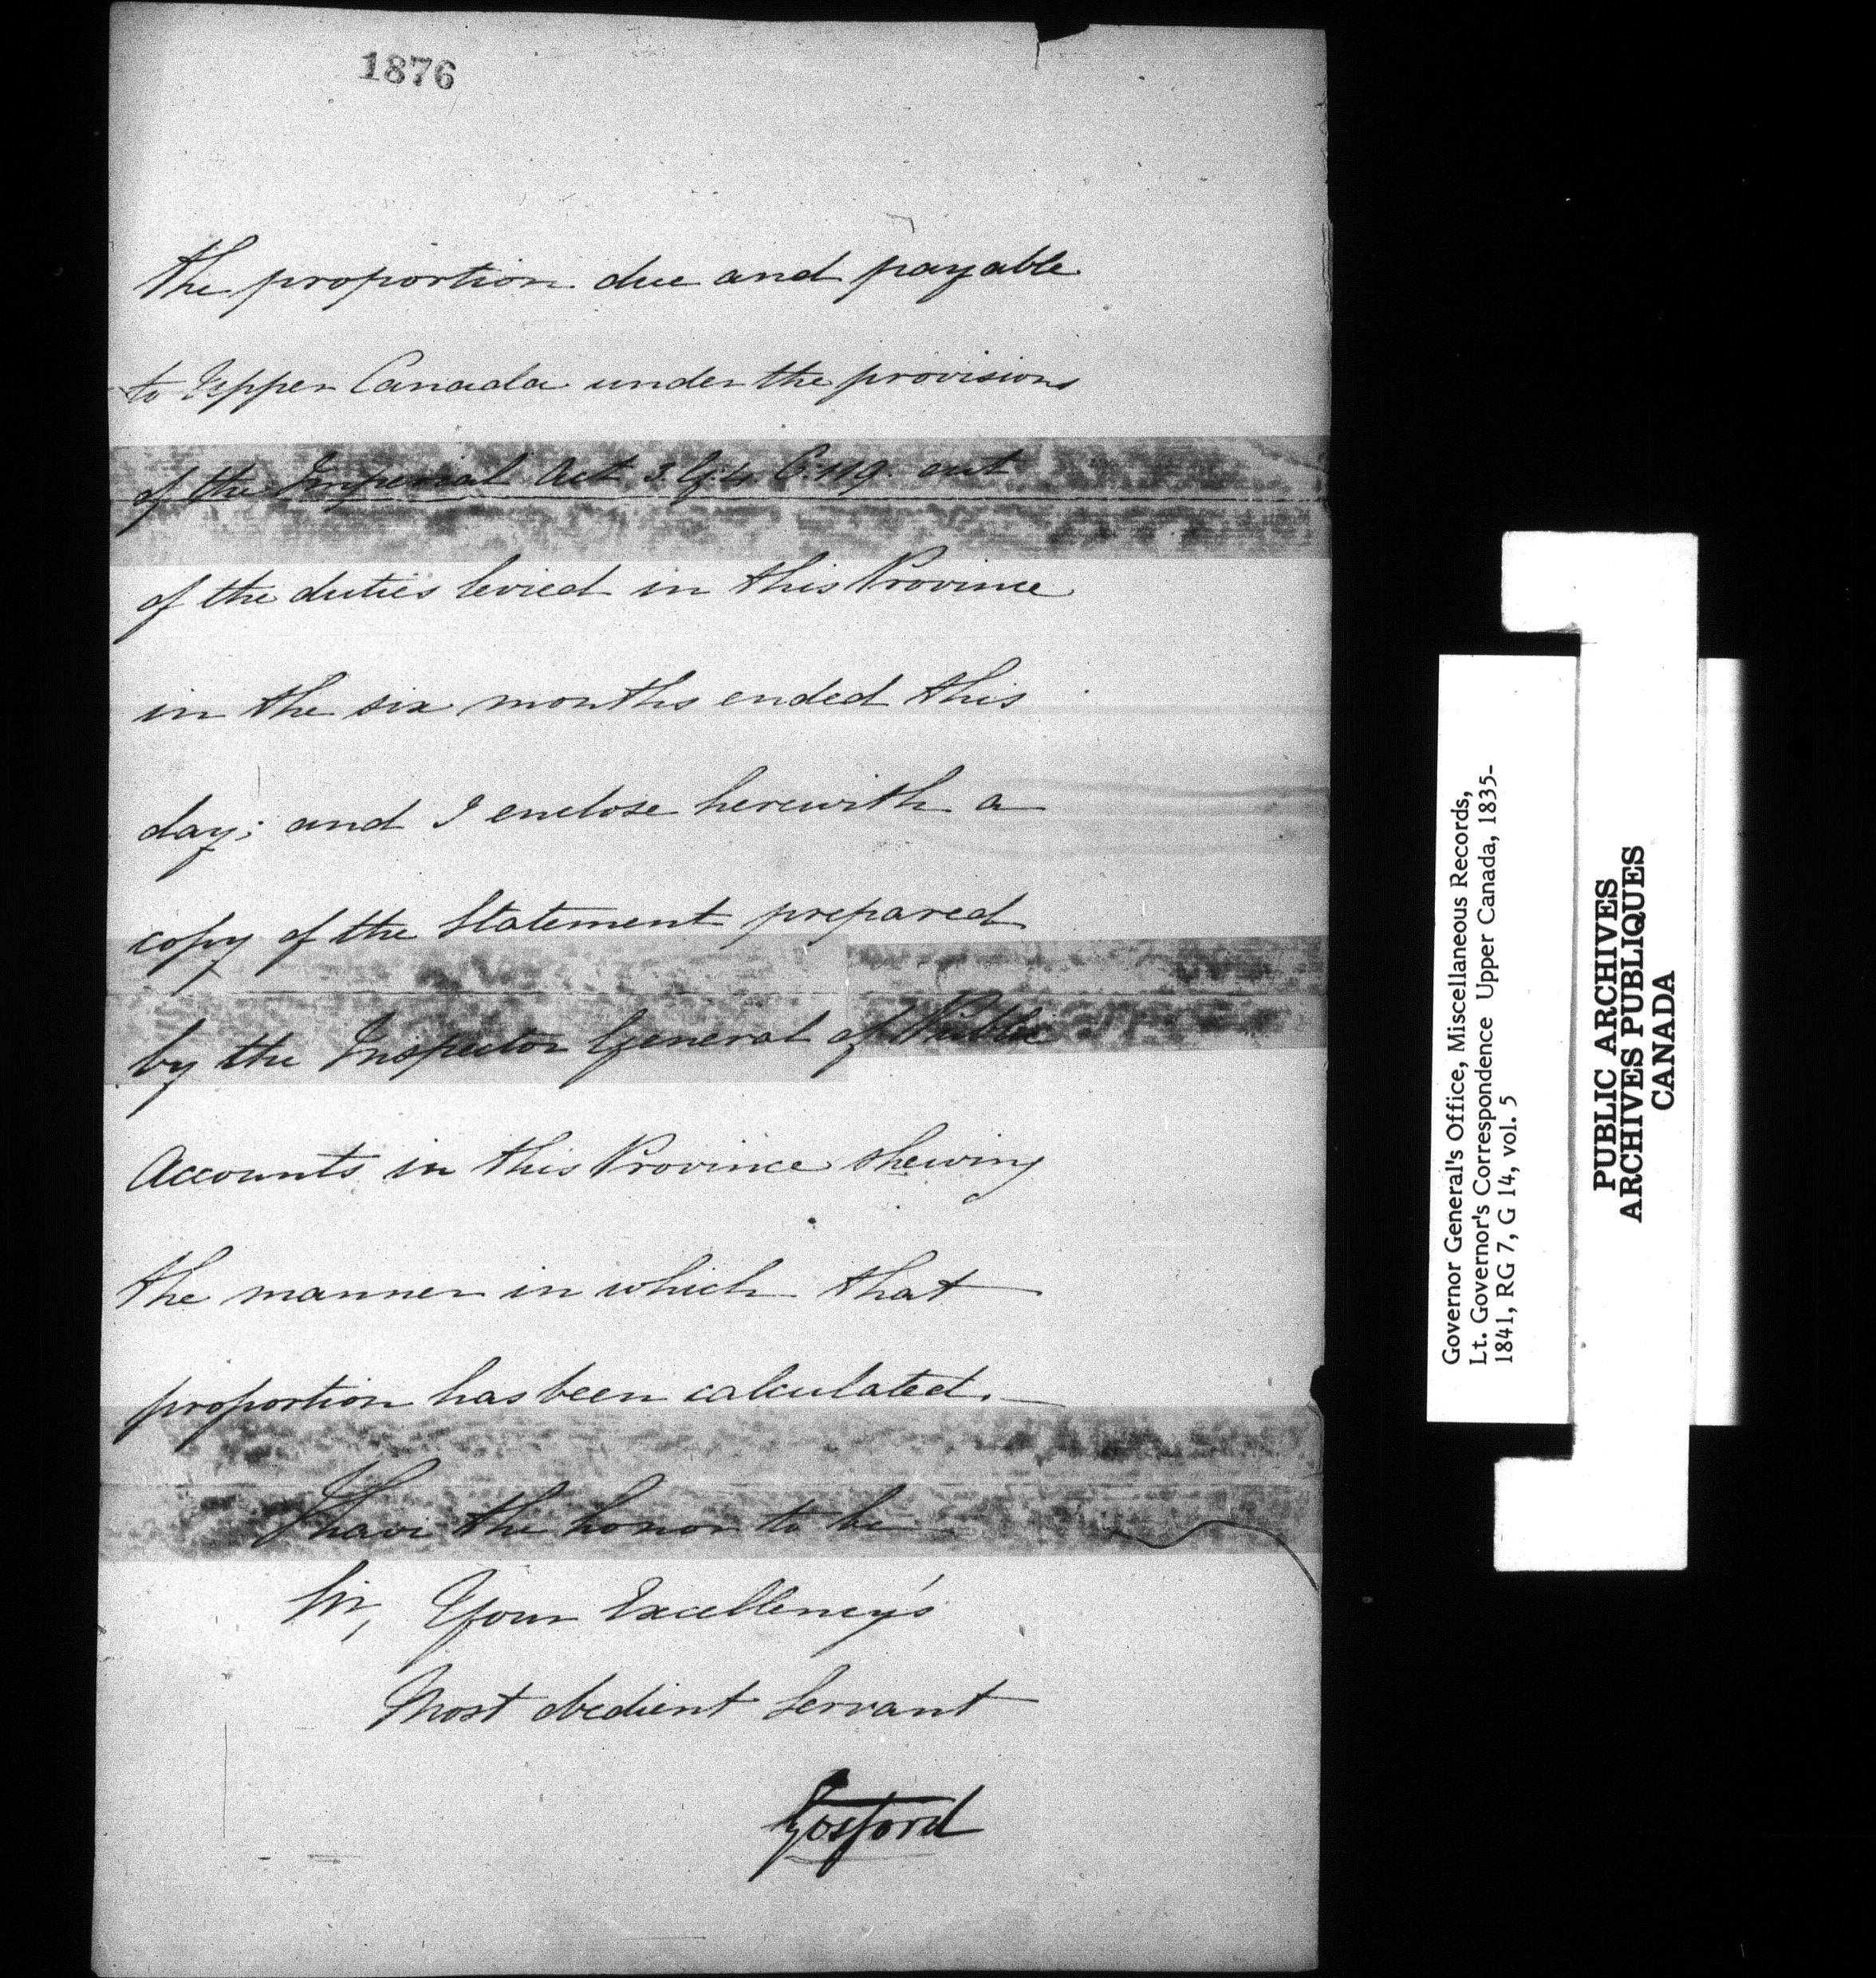 1876
the proportion due and payable
to Upper Canada under the provisions
of the Imperial Act 3. G. 4. C. 119. out
of the duties levied in this Province
in the six months ended this
day; and I enclose herewith a
copy of the Statement prepared
by the Inspector General of Public
Accounts in this Province shewing
the manner in which that
proportion has been calculated.—
I have the honor to be
Sir, Your Excellency's
Most obedient Servant
Gosford
Governor General's Office, Miscellaneous Records,
Lt. Governor's Correspondence Upper Canada, 1835-
1841, RG 7, G 14, vol. 5
PUBLIC ARCHIVES
ARCHIVES PUBLIQUES
CANADA